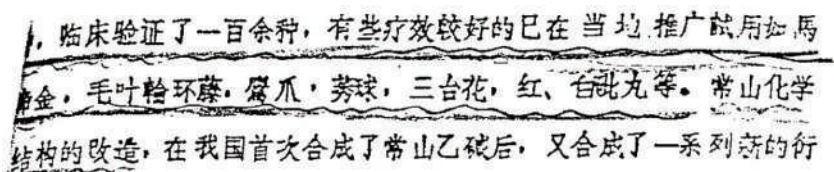 ，临床验证了一百余种，有些疗效较好的已在当地推广试用如馬
金，毛叶轮环藤，鹰爪，蒡球，三台花，红、白砒丸等。常山化学
结构的改造，在我国首次合成了常山乙碱后，又合成了一系列新的衍